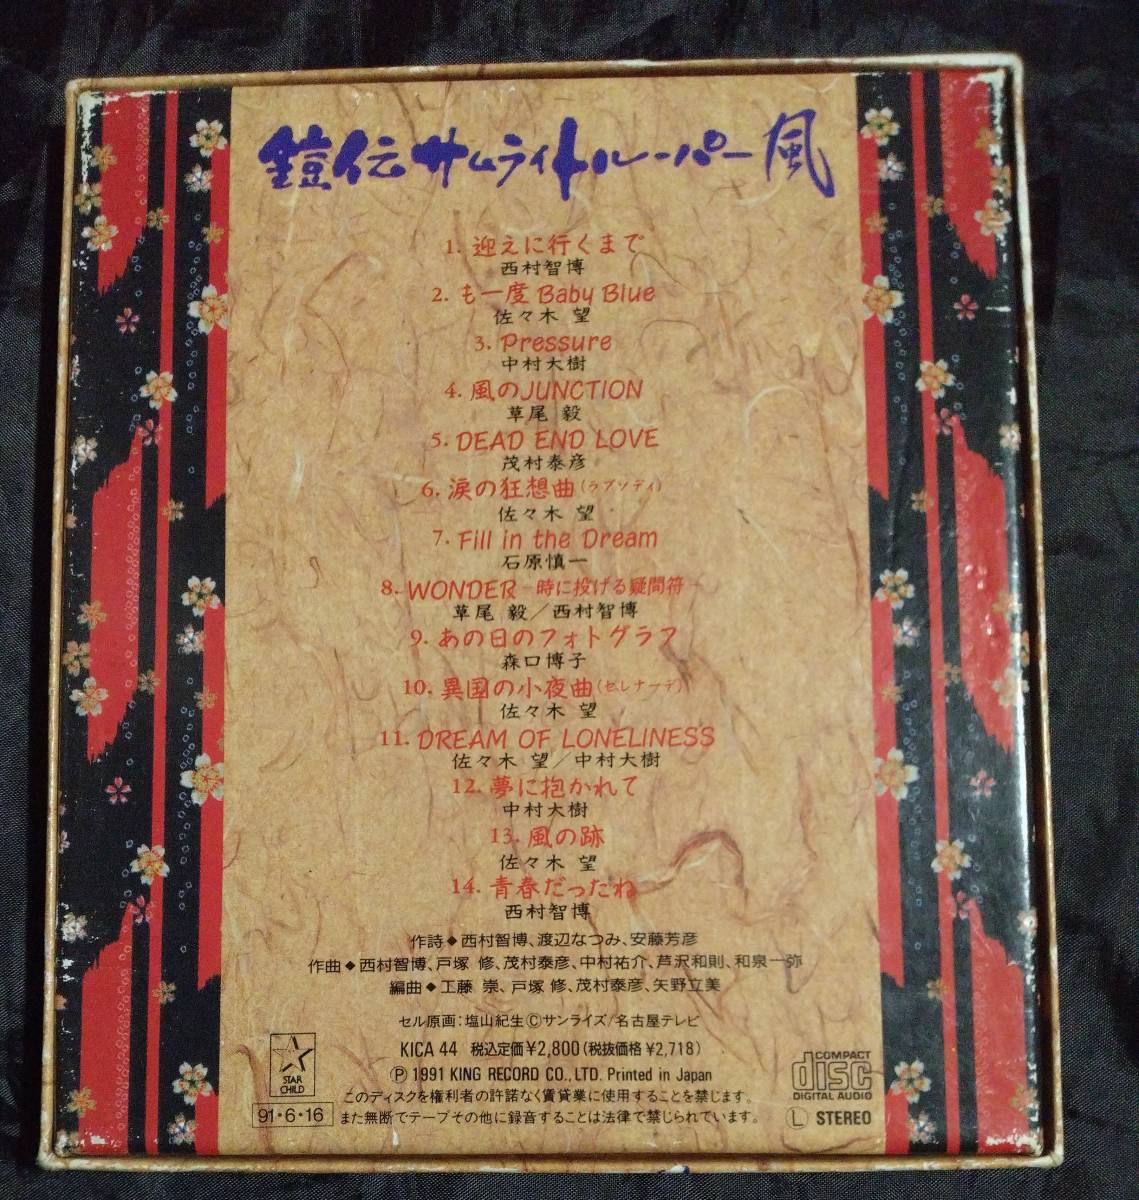 鎧伝サムライトルーパー風
1. 迎えに行くまで
西村智博
2. も一度 Baby Blue
佐々木 望
3. Pressure
中村大樹
4. 風のJUNCTION
草尾 毅
5. DEAD END LOVE
茂村泰彦
6. 涙の狂想曲(ラプソディ)
佐々木 望
7. Fill in the Dream
石原慎一
8. WONDER-時に投げる疑問符-
草尾 毅/西村智博
9. あの日のフォトグラフ
森口博子
10. 異国の小夜曲(セレナーデ)
佐々木 望
11. DREAM OF LONELINESS
佐々木 望/中村大樹
12. 夢に抱かれて
中村大樹
13. 風の跡
佐々木 望
14. 青春だったね
西村智博
作詩◆西村智博、渡辺なつみ、安藤芳彦
作曲◆西村智博、戸塚 修、茂村泰彦、中村祐介、芦沢和則、和泉一弥
編曲◆工藤 崇、戸塚 修、茂村泰彦、矢野立美
セル原画:塩山紀生Ⓒサンライズ/名古屋テレビ
KICA 44 税込定価¥2,800(税抜価格¥2,718)
Ⓟ1991 KING RECORD CO., LTD. Printed in Japan
このディスクを権利者の許諾なく賃貸業に使用することを禁じます。
また無断でテープその他に録音することは法律で禁じられています。
STAR
CHILD
91・6・16
COMPACT
disc
DIGITAL AUDIO
Ⓛ STEREO